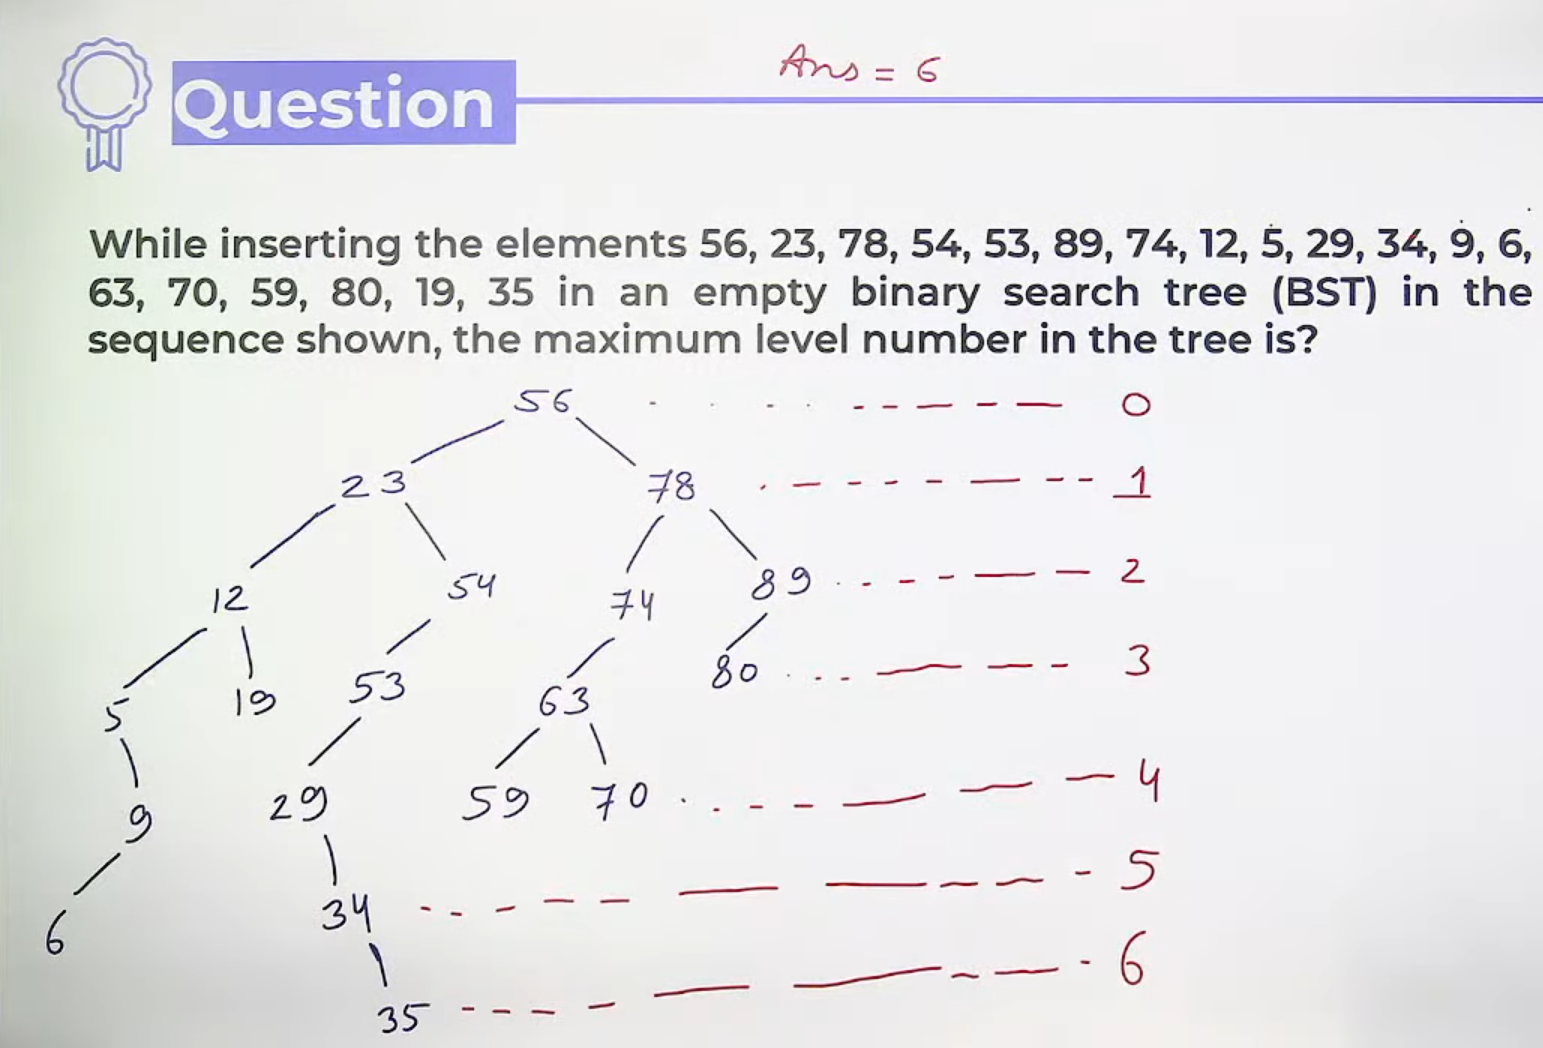 Ans = 6
Question
While inserting the elements 56, 23, 78, 54, 53, 89, 74, 12, 5, 29, 34, 9, 6,
63, 70, 59, 80, 19, 35 in an empty binary search tree (BST) in the
sequence shown, the maximum level number in the tree is?
56 0
23 78 1
12 54 74 89 2
5 19 53 63 80 3
9 29 59 70 4
6 34 5
35 6